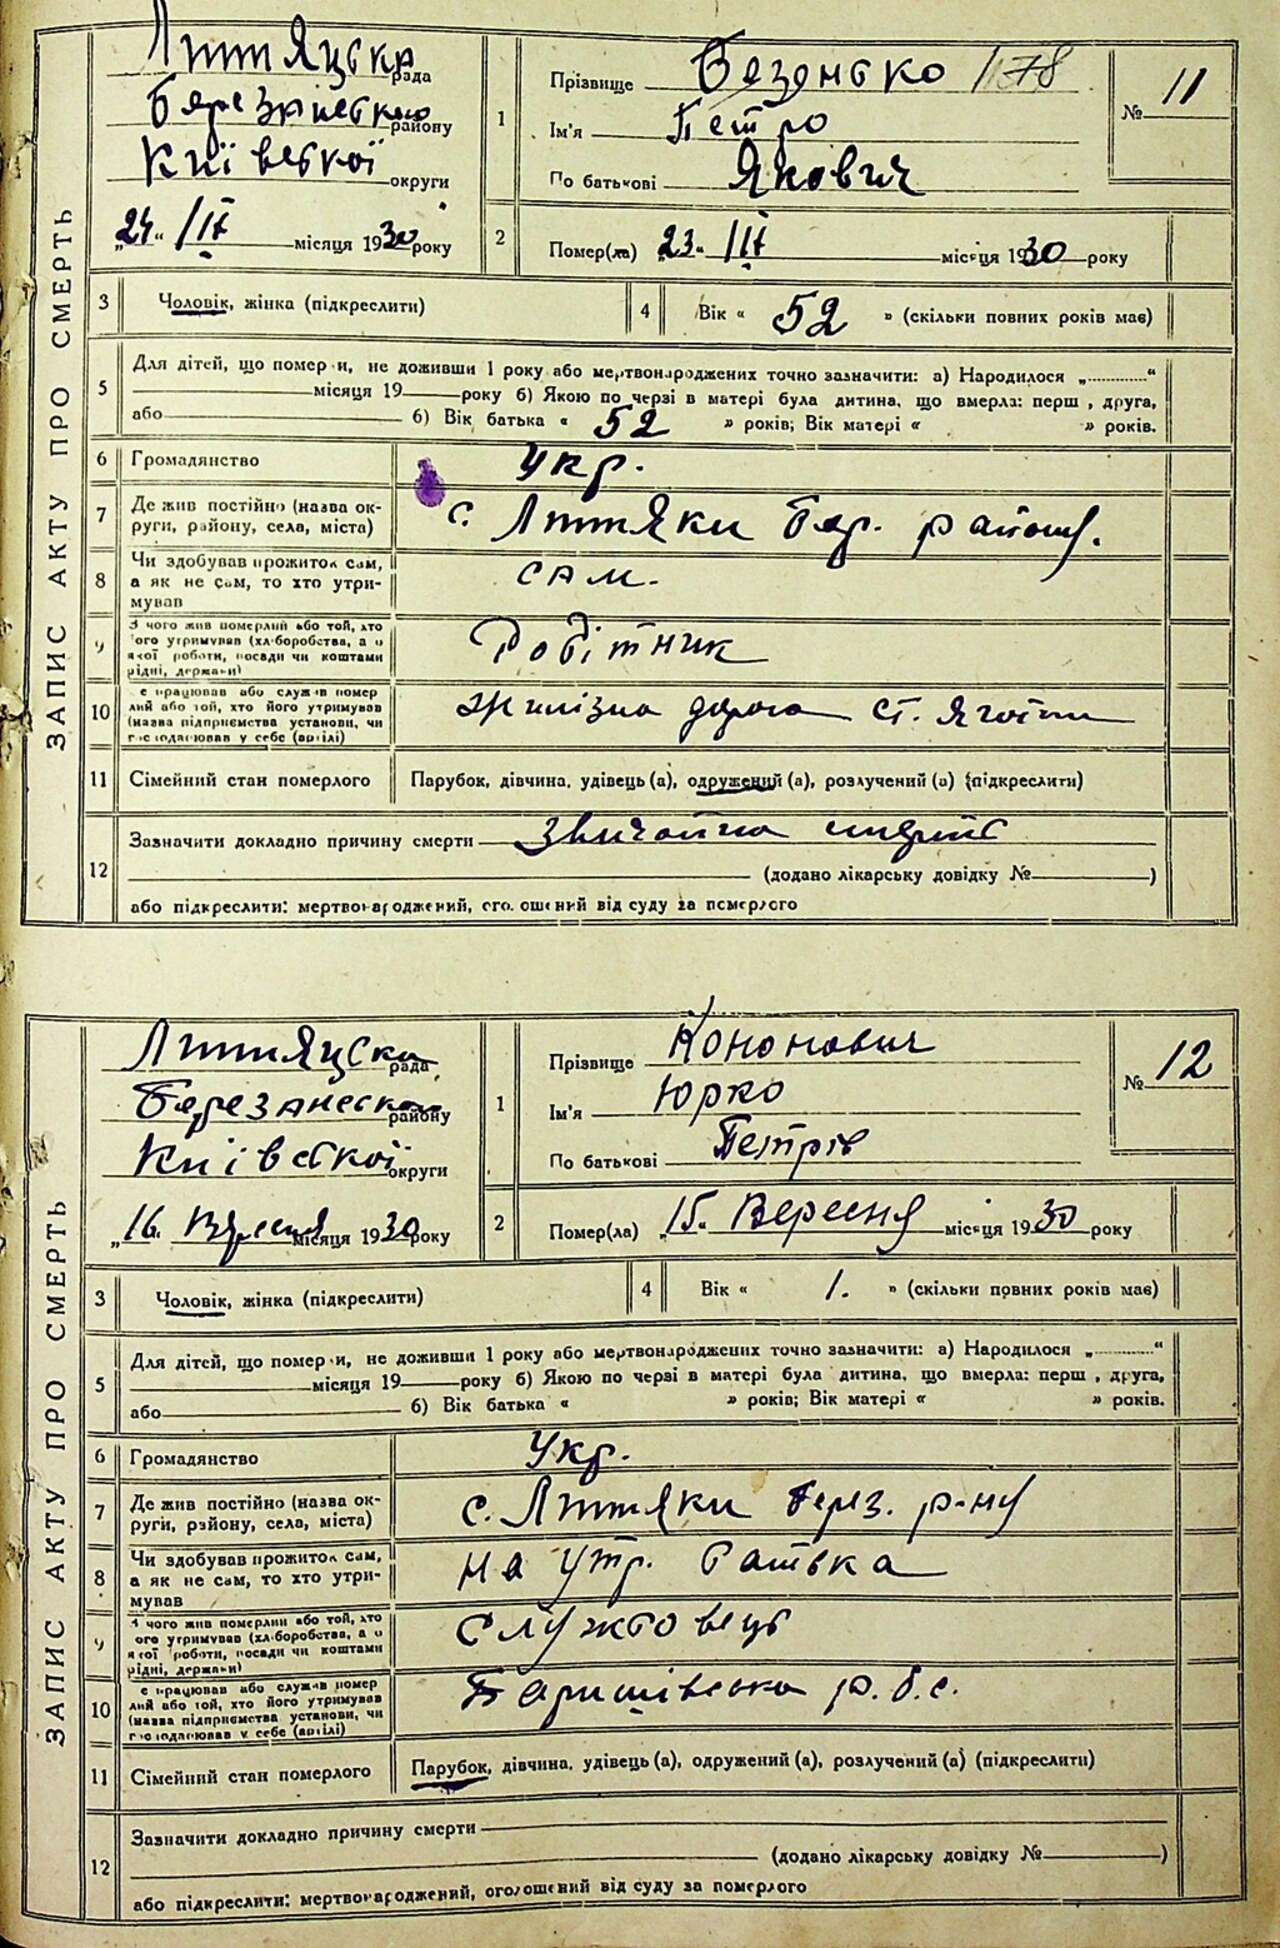 ЗАПИС АКТУ ПРО СМЕРТЬ
Лемляцька рада
Березанського району
Київської округи
„24“ /IX місяця 1930 року
1
Прізвище Безенько 178
Ім'я Петро
По батькові Якович
№ 11
2
Помер(ла) „23“ /IX місяця 1930 року
3 Чоловік, жінка (підкреслити)
4 Вік « 52 » (скільки повних років має)
5
Для дітей, що померли, не доживши 1 року або мертвонароджених точно зазначити: а) Народилося „............“
місяця 19 року б) Якою по черзі в матері була дитина, що вмерла: перш , друга,
або б) Вік батька « 52 » років; Вік матері « » років.
6 Громадянство Укр.
7 Де жив постійно (назва округи, району, села, міста) с. Лемляки Бер. району.
8 Чи здобував прожиток сам, а як не сам, то хто утримував сам.
9 З чого жив померлий або той, хто його утримував (хліборобства, а о якої роботи, посади чи коштами рідні, держави) Робітник
10 е працював або служив помер лий або той, хто його утримував (назва підприємства установи, чи господарював у себе (артілі) Жилізна дорога ст. Яготин
11 Сімейний стан померлого Парубок, дівчина, удівець (а), одружений (а), розлучений (а) (підкреслити)
12
Зазначити докладно причину смерти Звичайна смерть
(додано лікарську довідку № )
або підкреслити: мертвонароджений, оголошений від суду за померлого
ЗАПИС АКТУ ПРО СМЕРТЬ
рада
Березанської району
Київської округи
„16. Вересня місяця 1930 року
1
Прізвище Кононович
Ім'я Юрко
По батькові Петрів
№ 12
2
Помер(ла) „15. Вересня місяця 1930 року
3 Чоловік, жінка (підкреслити)
4 Вік « 1. » (скільки повних років має)
5
Для дітей, що померли, не доживши 1 року або мертвонароджених точно зазначити: а) Народилося „............“
місяця 19 року б) Якою по черзі в матері була дитина, що вмерла: перш , друга,
або б) Вік батька « » років; Вік матері « » років.
6 Громадянство Укр.
7 Де жив постійно (назва округи, району, села, міста) с. Берез. р-ну
8 Чи здобував прожиток сам, а як не сам, то хто утримував на утр. батька
9 З чого жив померлий або той, хто його утримував (хліборобства, а о якої роботи, посади чи коштами рідні, держави) Службовець
10 е працював або служив помер лий або той, хто його утримував (назва підприємства установи, чи господарював у себе (артілі) Баришівська р.б.с.
11 Сімейний стан померлого Парубок, дівчина, удівець (а), одружений (а), розлучений (а) (підкреслити)
12
Зазначити докладно причину смерти
(додано лікарську довідку № )
або підкреслити: мертвонароджений, оголошений від суду за померлого